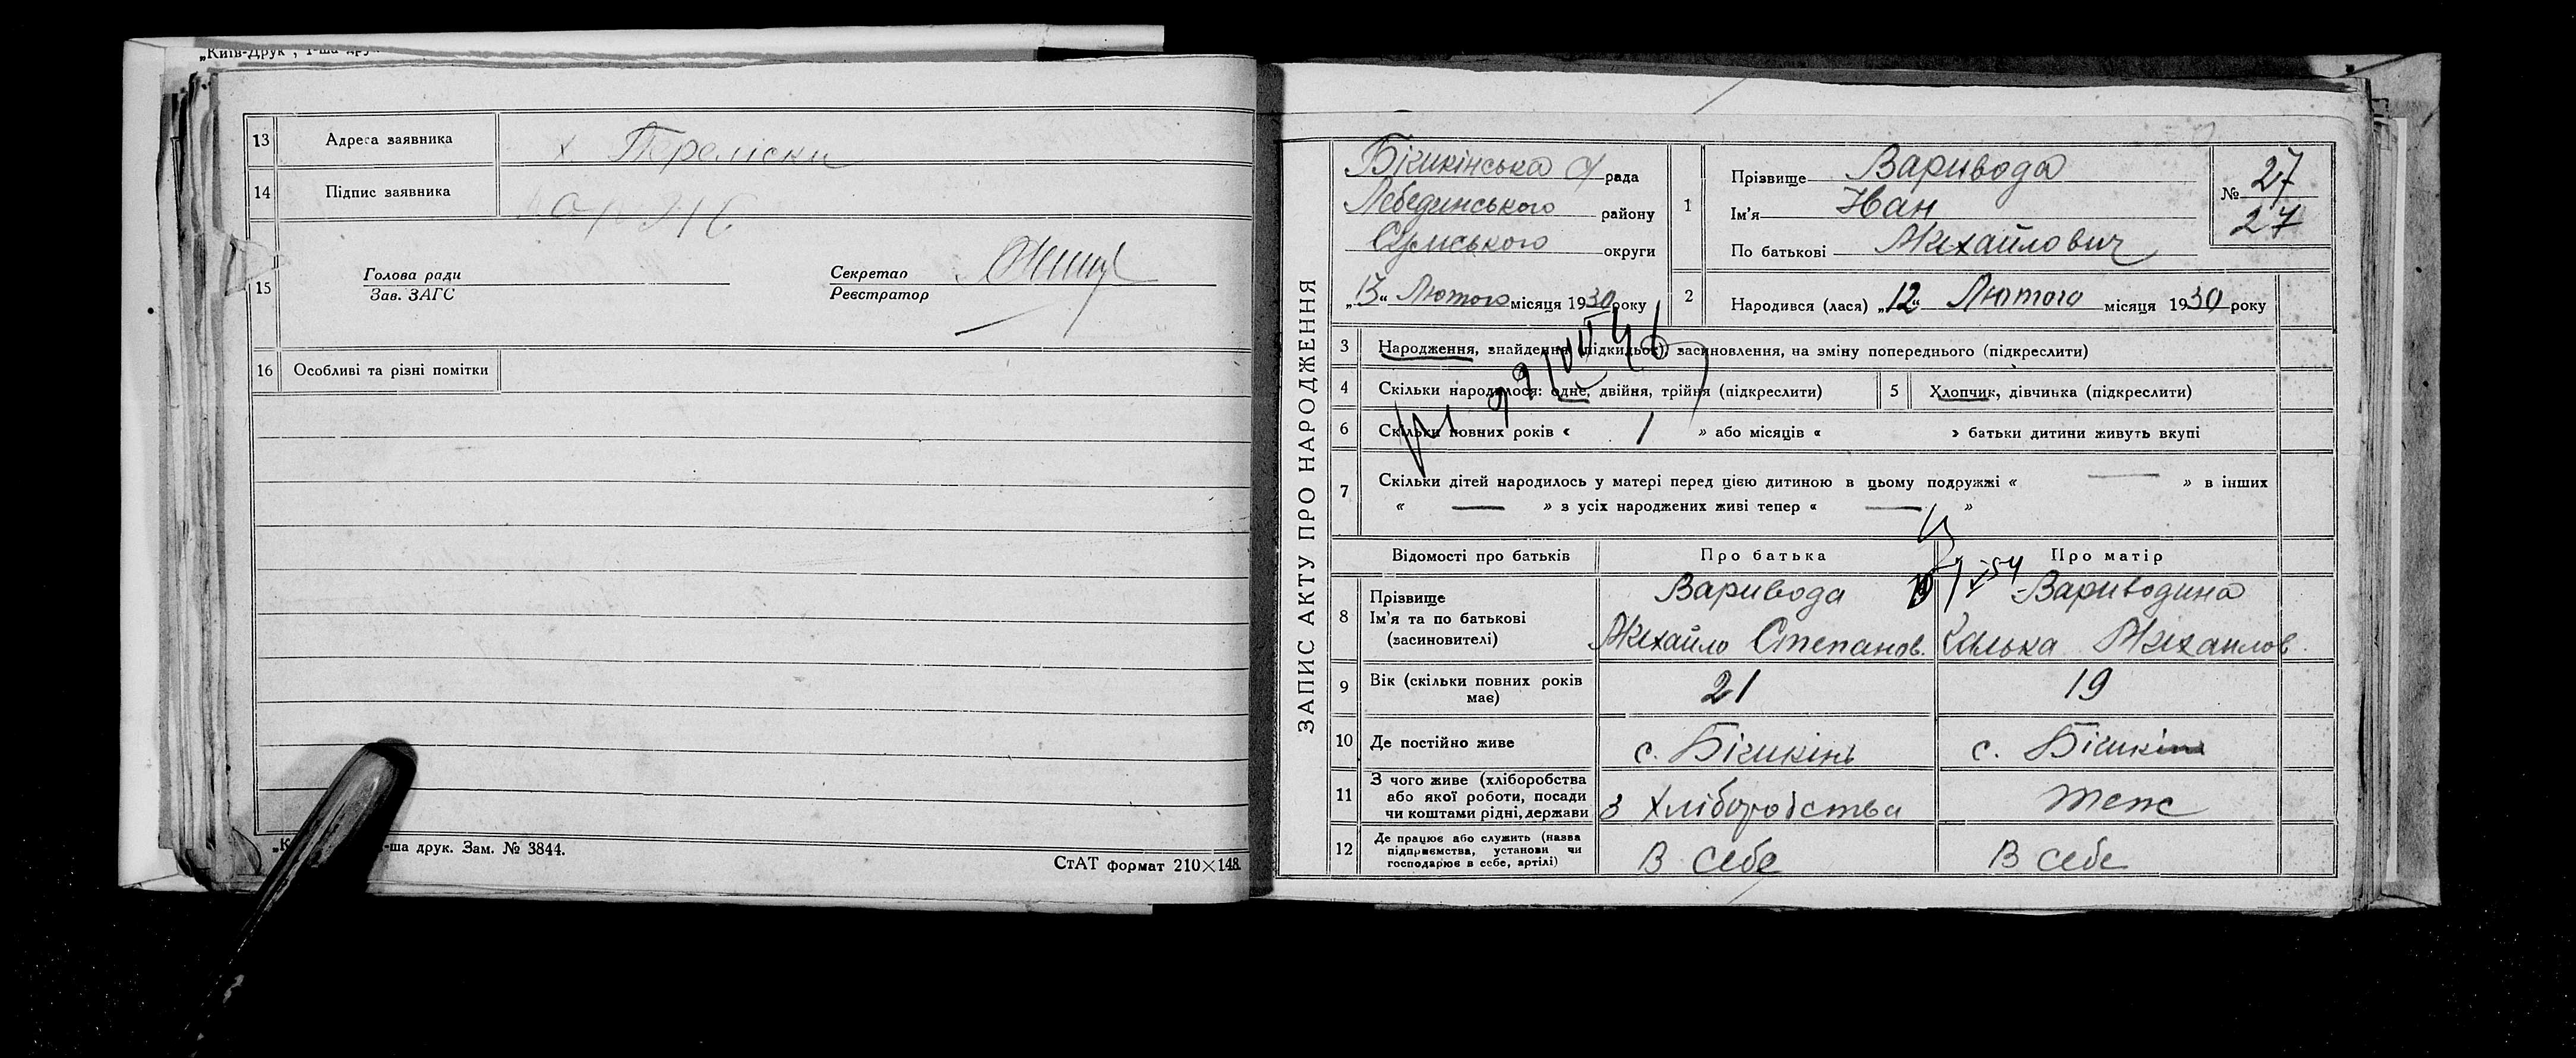 „Київ-Друк", 1-ша друк.
13 Адреса заявника х. Переліски
14 Підпис заявника
15 Голова ради Секретар
Зав. ЗАГС Реєстратор
16 Особливі та різні помітки
-ша друк. Зам. № 3844.
СтАТ формат 210×148.
ЗАПИС АКТУ ПРО НАРОДЖЕННЯ
Бішкінська с/рада
Лебединського району
Сумського округи
„13" Лютого місяця 1930 року
1 Прізвище Варивода
Ім'я Иван
По батькові Михайлович
№ 27
27
2 Народився (лася) „12" Лютого місяця 1930 року
3 Народження, знайдення (підкидьок) засиновлення, на зміну попереднього (підкреслити)
4 Скільки народилося: одне, двійня, трійня (підкреслити) 5 Хлопчик, дівчинка (підкреслити)
6 Скільки повних років « 1 » або місяців « » батьки дитини живуть вкупі
7 Скільки дітей народилось у матері перед цією дитиною в цьому подружжі « — » в інших
« — » з усіх народжених живі тепер « — »
Відомості про батьків Про батька Про матір
8 Прізвище Варивода Вариводина
Ім'я та по батькові
(засиновителі) Михайло Степанов. Михаилов.
9 Вік (скільки повних років має) 21 19
10 Де постійно живе с. Бішкінь с. Бішкінь
11 З чого живе (хліборобства або якої роботи, посади чи коштами рідні, держави З Хліборобства теж
12 Де працює або служить (назва підприємства, установи чи господарює в себе, артілі) В себе В себе